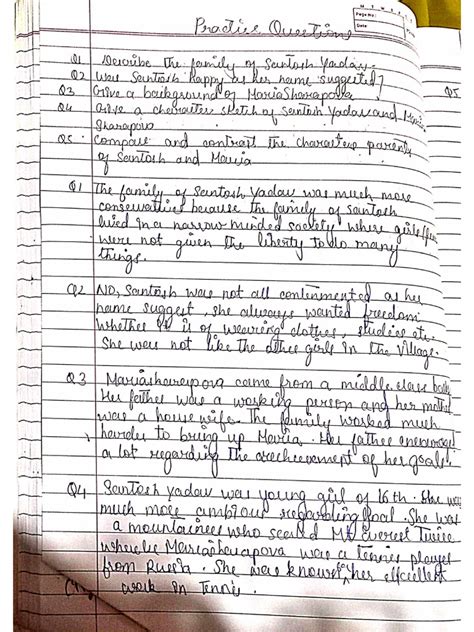 M T W T F S S
Page No.:
Date:
Practice Questions
Q1 Describe the family of Santosh Yadav.
Q2 Was Santosh happy as her name suggested?
Q3 Give a background of Maria Sharapova
Q4 Give a character sketch of Santosh Yadav and Maria
Sharapova
Q5. Compare and contrast the characters parents
of Santosh and Maria
Q5
Q1 The family of Santosh Yadav was much more
conservatives because the family of santosh
lived in a narrow minded society where girls
were not given the liberty to do many
things.
Q2 NO, Santosh was not all contenmented as her
name suggest, she always wanted freedom
whether it is of wearing clothes, studies etc.
She was not like the other girls in the village.
Q3 Mariasharapova came from a middle class
Her father was a working person and her mother
was a house wife. The family worked much
harder to bring up Maria. Her father encourage
a lot regarding the archievement of her goals.
Q4 Santosh Yadav was young girl of 16th. She was
much more ambious regarding goal. She was
a mountainees who scaled Mt Everest Twice
whereles Mariasharapova was a tennis player
from Russia. She was known her effecient
work in Tennis.